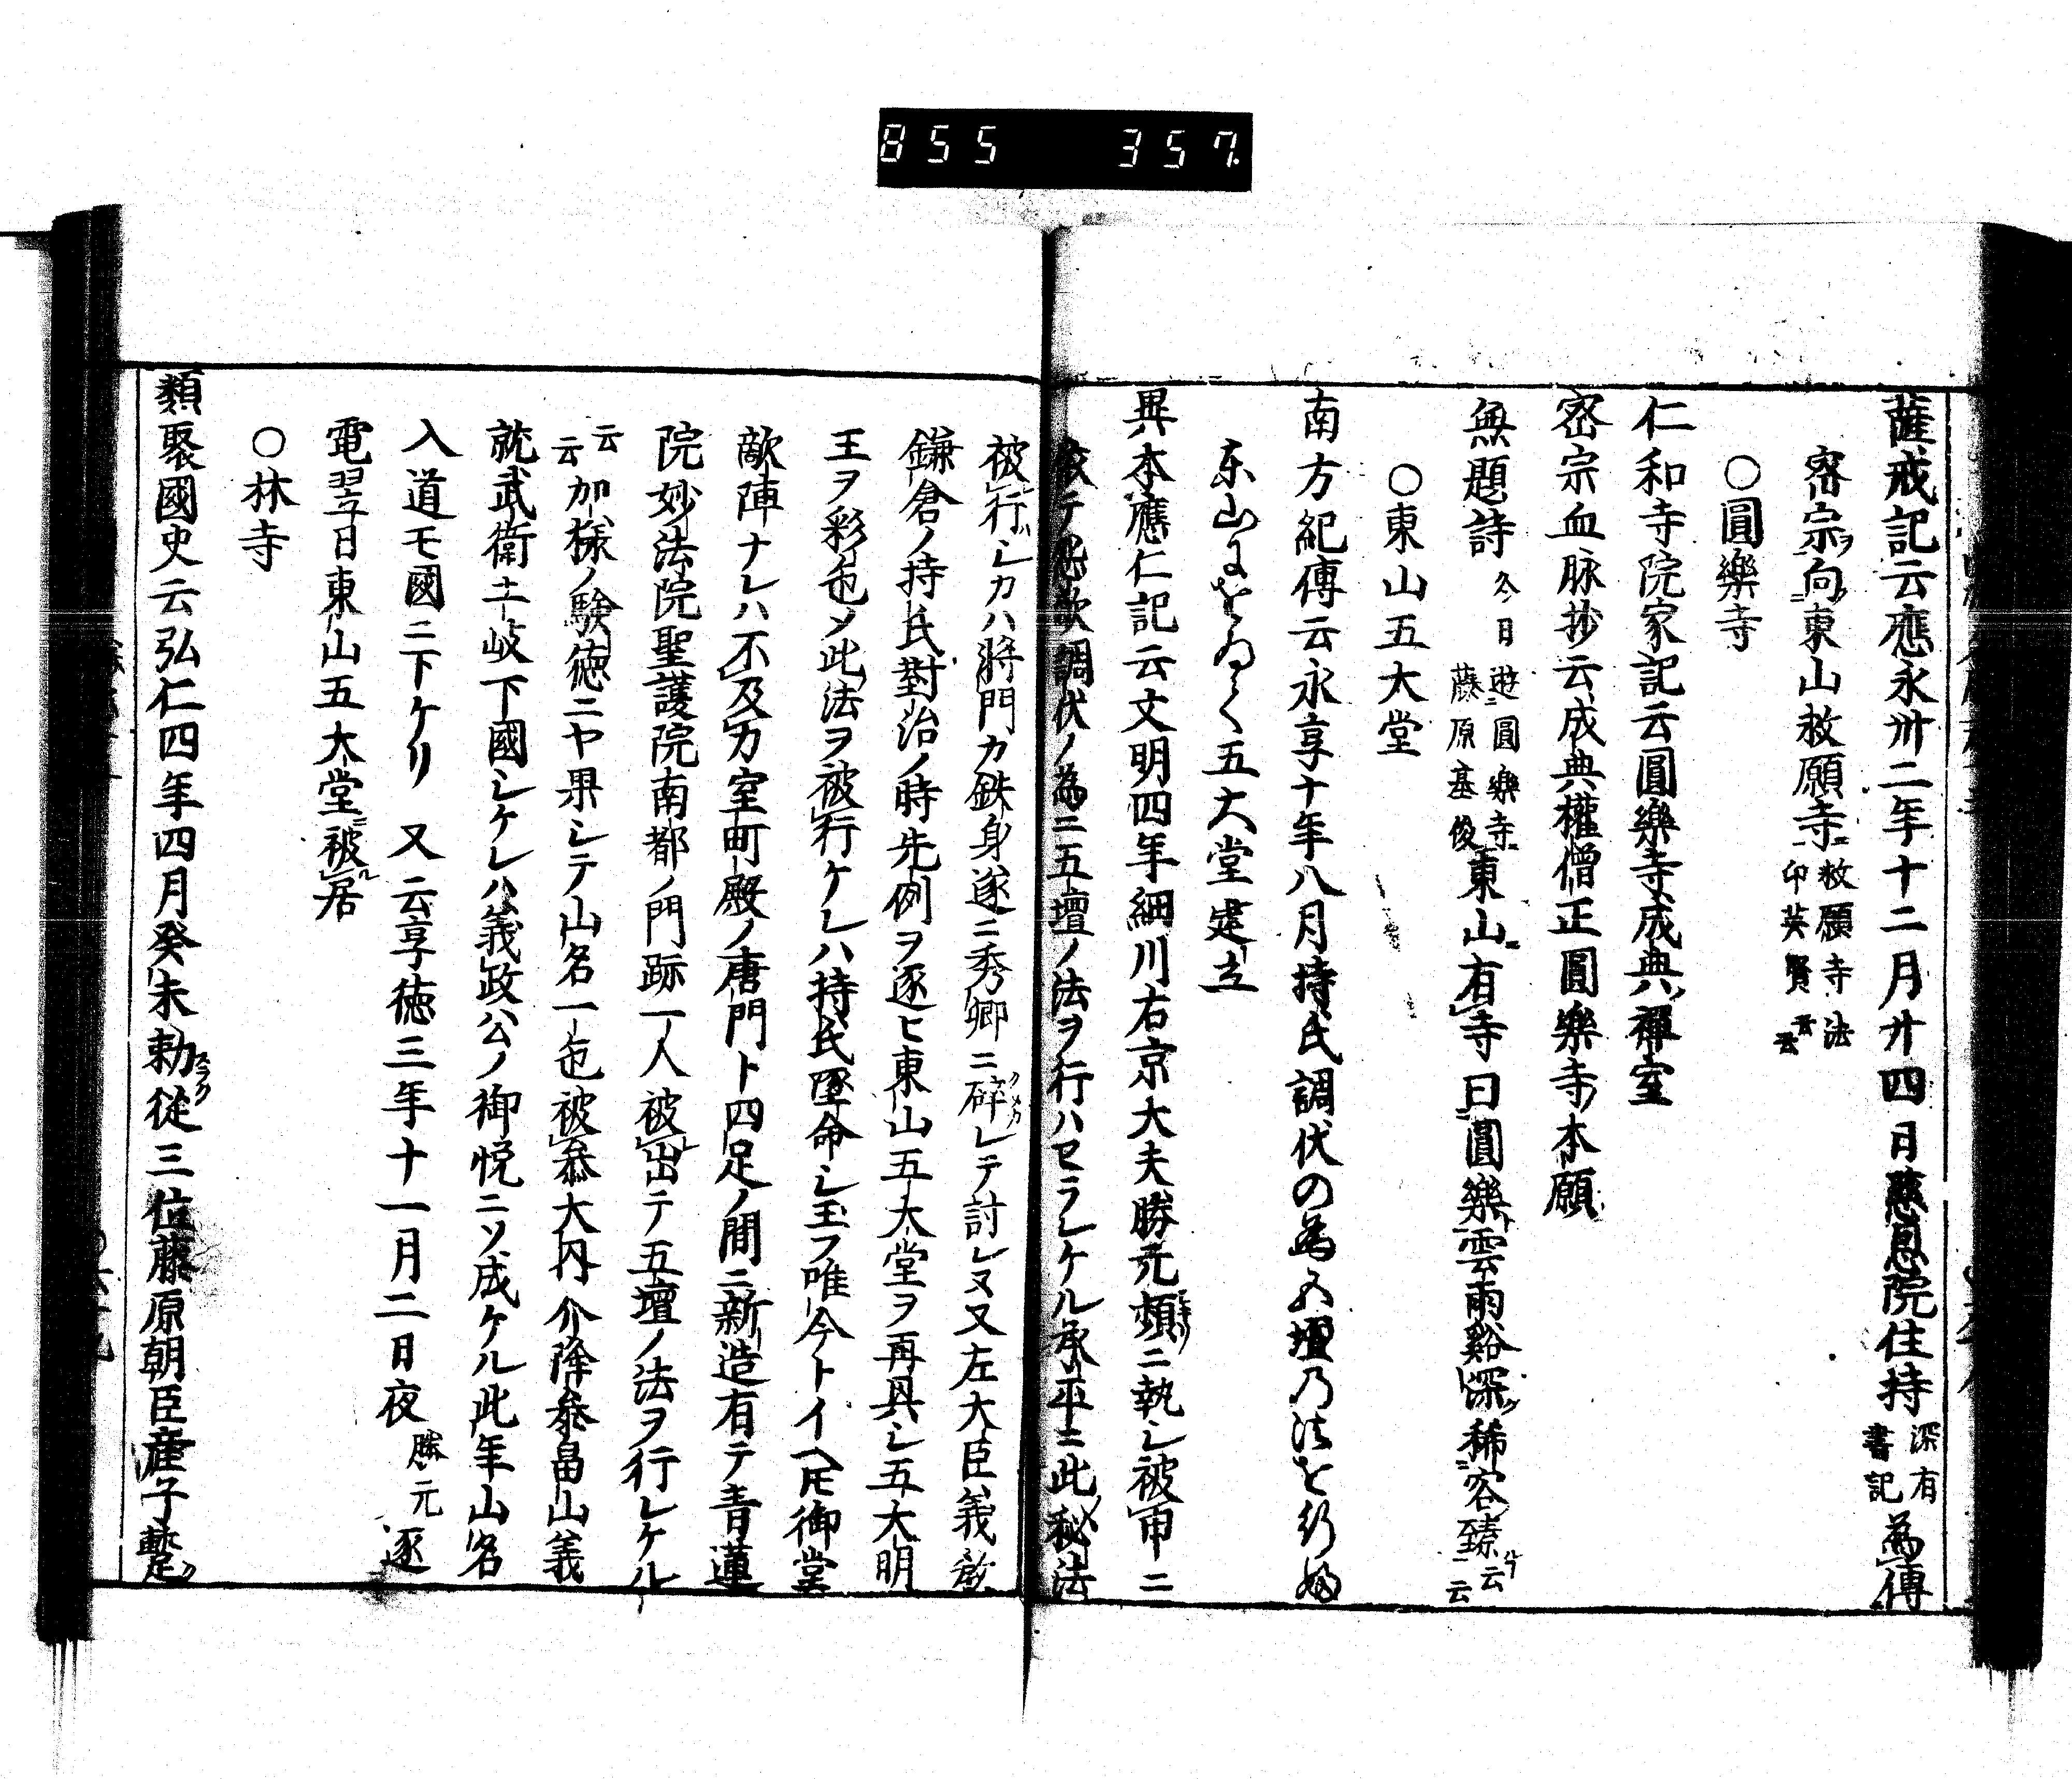 855 357
薩戒記云應永卅二年十二月廿四日慈恩院住持深有書記為傳
密宗向東山救願寺救願寺法印英賢云云
○圓樂寺
仁和寺院家記云圓樂寺成典禪室
密宗血脉抄云成典權僧正圓樂寺本願
無題詩今日遊圓樂寺藤原基俊東山有寺曰圓樂雲雨谿深稀客臻云云
○東山五大堂
南方紀傳云永享十年八月持氏調伏の為五壇乃法を行
东山によゐく五大堂建立
異本應仁記云文明四年細川右京大夫勝元頻ニ執シ被申ニ
敵調伏ノ為ニ五壇ノ法ヲ行ハセラレケル承平ニ此秘法
被行シカハ將門カ鉄身遂ニ秀卿ニ碎レテ討レヌ又左大臣義教
鎌倉ノ持氏對治ノ時先例ヲ逐ヒ東山五大堂ヲ再興シ五大明
王ヲ彩色メ此法ヲ被行ケレハ持氏墜命シ玉フ唯今トイヘ𪜈御堂
敵陣ナレハ不及力室町殿ノ唐門ト四足ノ間ニ新造有テ青蓮
院妙法院聖護院南都ノ門跡一人被出テ五壇ノ法ヲ行レケル
云云加様ノ験徳ニヤ果シテ山名一色被參大内介降參畠山義
就武衛土岐下國シケレハ義政公ノ御悦ニソ成ケル此年山名
入道モ國ニ下ケリ 又云享徳三年十一月二日夜勝元逐
電翌日東山五大堂被居
○林寺
類聚國史云弘仁四年四月癸未勅從三位藤原朝臣産子塹